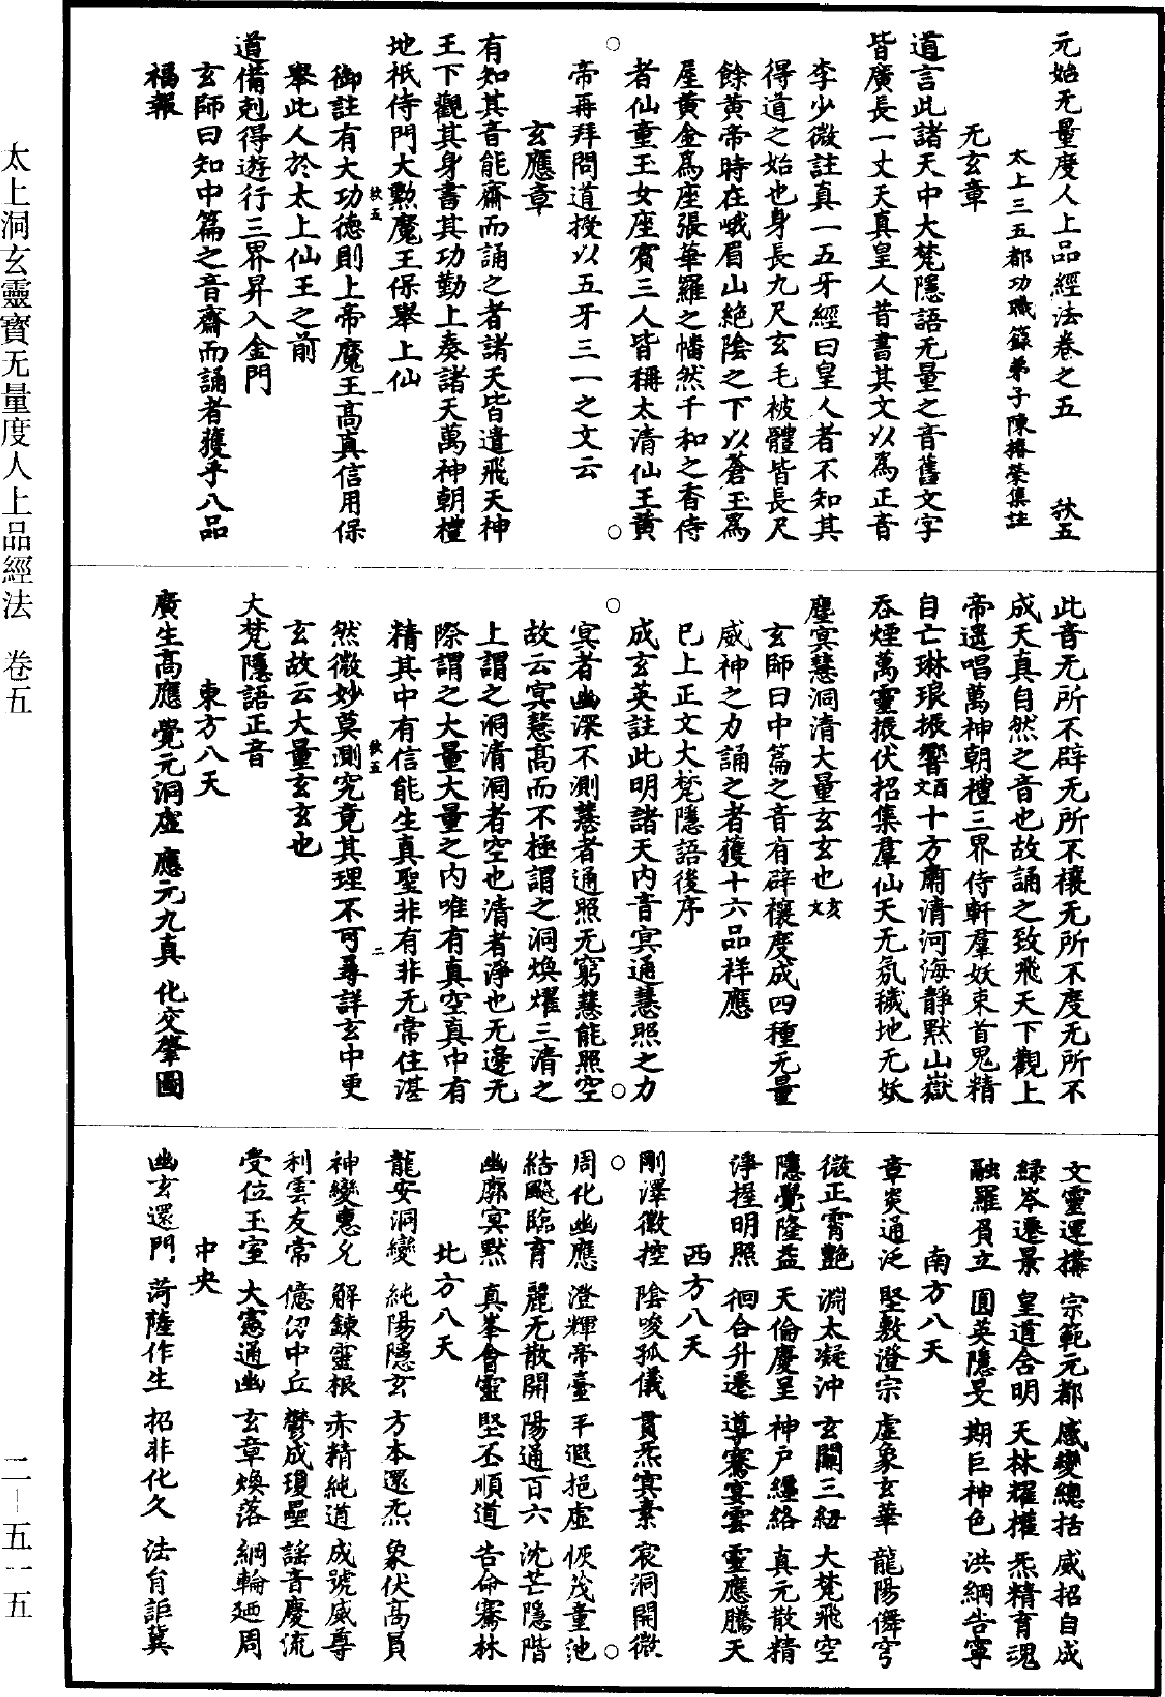 元始无量度人上品經法卷之五　　　　　𡘤五
太上三五都功職籙弟子陳椿榮集註
无玄章
道言此諸天中大梵隱語无量之音舊文字
皆廣長一丈天真皇人昔書其文以為正音
李少微註真一五牙經曰皇人者不知其
得道之始也身長九尺玄毛被體皆長尺
餘黃帝時在峨眉山絕陰之下以蒼玉為
屋黃金為座張華羅之幡然千和之香侍
者仙童玉女座賓三人皆稱太清仙王黃
帝再拜問道授以五牙三一之文云
玄應章
有知其音能齋而誦之者諸天皆遣飛天神
王下觀其身書其功勤上奏諸天萬神朝禮
地祇侍門大勲魔王保舉上仙
御註有大功德則上帝魔王高真信用保
舉此人於太上仙王之前
道備剋得遊行三界昇入金門
玄師曰知中篇之音齋而誦者獲乎八品
福報
此音无所不辟无所不禳无所不度无所不
成天真自然之音也故誦之致飛天下觀上
帝遥唱萬神朝禮三界侍軒羣妖束首鬼精
自亡琳琅振響十方肅清河海靜默山嶽
吞煙萬靈振伏招集羣仙天无氛穢地无妖
塵冥慧洞清大量玄玄也
玄師曰中篇之音有辟禳度成四種无量
威神之力誦之者獲十六品祥應
巳上正文大梵隱語後序
成玄英註此明諸天內音冥通慧照之力
冥者幽深不測慧者通照无窮慧能照空
故云冥慧高而不極謂之洞煥燿三清之
上謂之洞清洞者空也清者淨也无邊无
際謂之大量大量之內唯有真空真中有
精其中有信能生真聖非有非无常住湛
然微妙莫測究竟其理不可尋詳玄中更
玄故云大量玄玄也
大梵隱語正音
東方八天
廣生高應　覺元洞虛　應元九真　化交肇圖
文靈運攜　宗範元都　感變總括　威招自成
緑岑遷景　皇道含明　天林耀權　炁精育魂
融羅眉立　圓英隱旻　期巨神色　洪綱告寧
南方八天
章炎通泛　堅敷澄宗　虛象玄華　龍陽儛穹
微正霄艷　淵太凝沖　玄關三紐　大梵飛空
隱覺隆益　天倫慶呈　神戶纒絡　真元散精
淨握明照　徊合升遷　導騫宴雲　靈應騰天
西方八天
剛澤徽控　陰唆孤儀　貫炁冥素　宸洞開微
周化幽應　澄輝帝臺　平遐挹虛　恢茂童池
結飈臨育　麗无散開　陽通百六　沈芒隱階
幽廓冥默　真峯會靈　堅丕順道　告命騫林
北方八天
龍安洞變　純陽隱玄　方本還炁　象伏高員
神變惠允　解鍊靈根　赤精純道　成號威尊
利雲友常　億劫中丘　鬱成瓊壘　謠音慶流
受位玉室　大憲通幽　玄章煥落　綱輪廻周
中央
幽玄還門　菏薩作生　招非化久　法育詎冀
太上洞玄靈寶无量度人上品經法　卷五
二―五一五